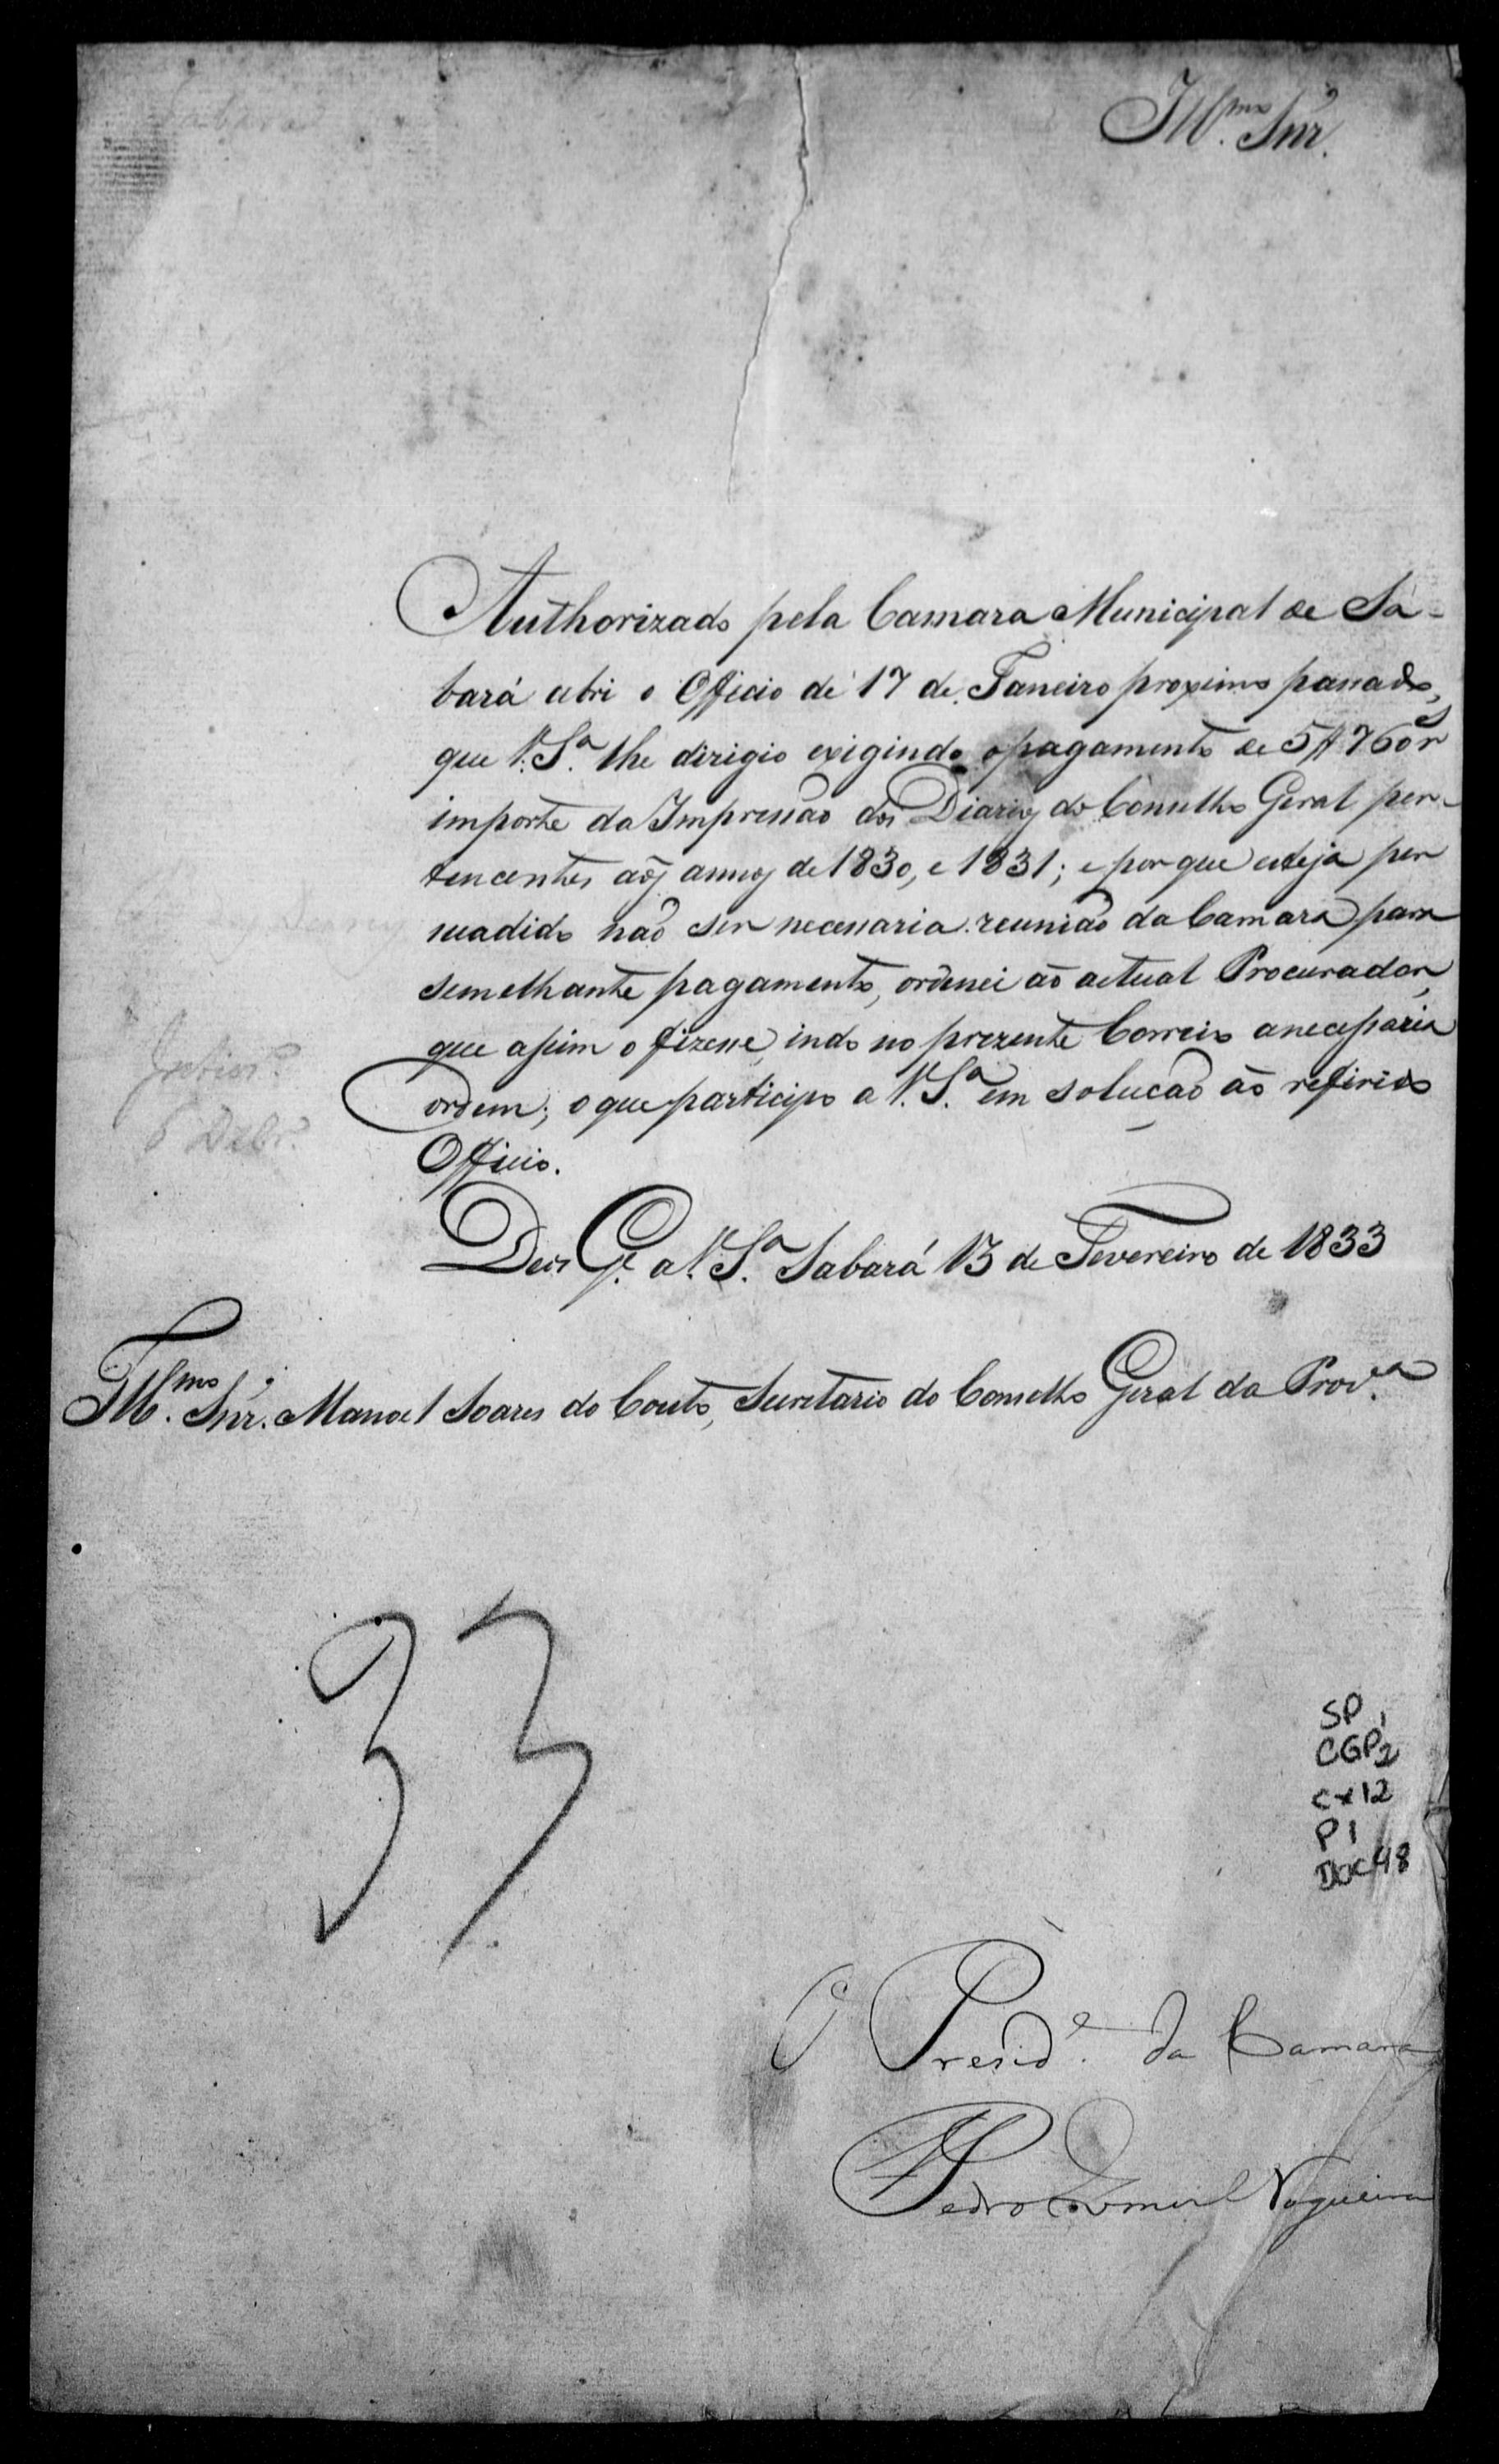 Sabará
Illmo. Snr.
Authorizado pela Camara Municipal de Sa-
bará abri o Officio de 17 de Janeiro proximo passado,
que V. Sa. lhe dirigio exigindo o pagamento de 5$760 rs
importe da Impressão dos Diarios do Conselho Geral per-
tencentes aos annos de 1830, e 1831; e por que esteja per
suadido não ser necessaria reunião da Camara para
semelhante pagamento, ordenei ao actual Procurador,
que assim o fizesse, indo no prezente Correio a necessaria
ordem; o que participo a V. Sa. em solução ao referido
Officio.
Deos Ge. a V. Sa. Sabará 13 de Fevereiro de 1833
Illmo. Snr. Manoel Soares do Couto, Secretario do Conselho Geral da Prova.
33
SP
CGP1
2
cx12
P1
Doc48
O Preside. da Camara
Pedro Nogueira